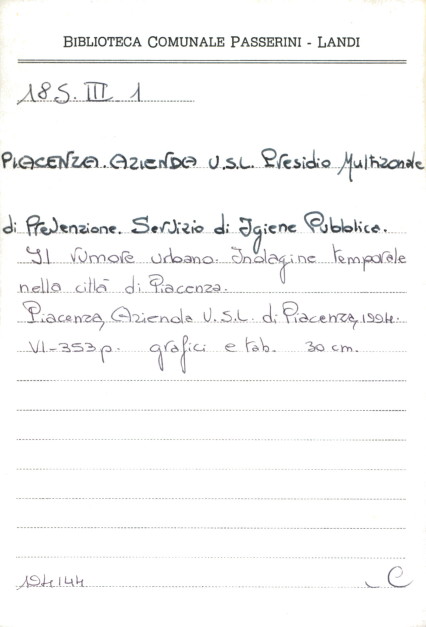 BIBLIOTECA COMUNALE PASSERINI - LANDI
185. III 1
PIACENZA. AZIENDA U.S.L. Presidio Multizonale
di Prevenzione. Servizio di Igiene Pubblica.
Il rumore urbano. Indagine temporale
nella città di Piacenza.
Piacenza, Azienda U.S.L. di Piacenza, 1994.
VI-353 p. grafici e tab. 30 cm.
194144 C